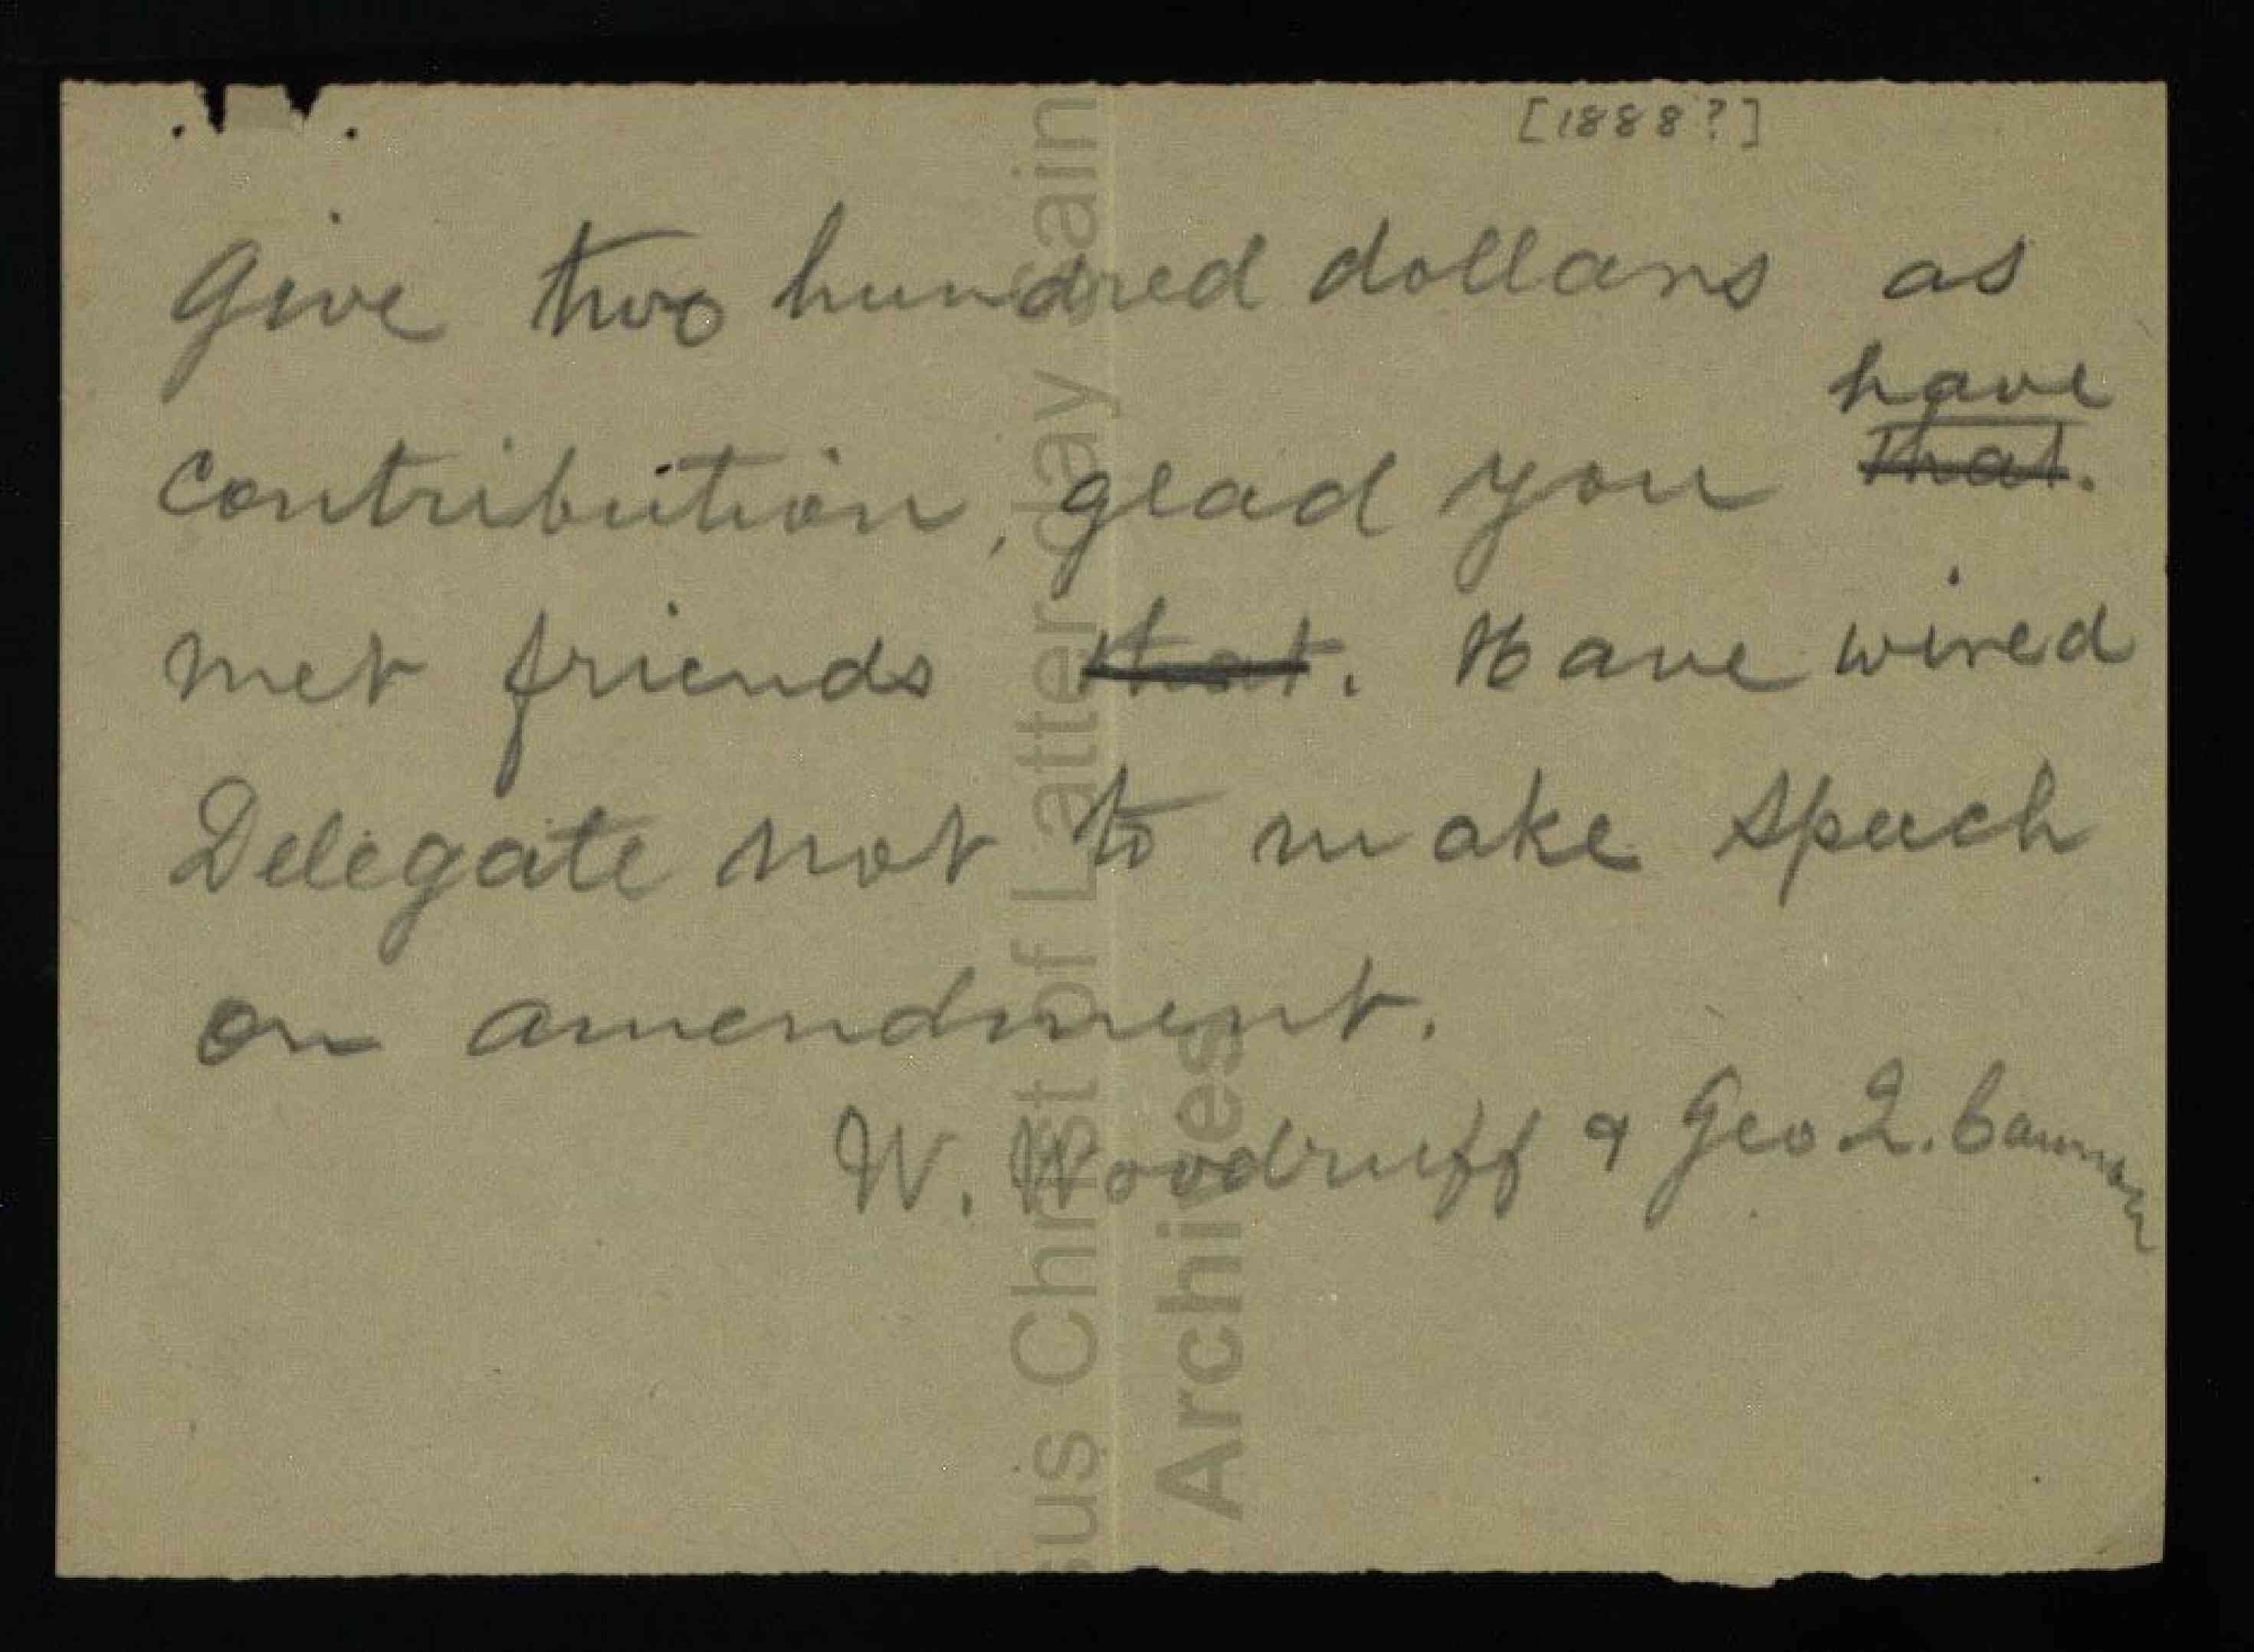 [1888?]
Give two hundred dollars as
have
contribution, glad you that.
met friends that. Have wired
Delegate not to make speech
on amendment.
W. Woodruff & Geo Q. Cannon
sus Christ of Latter-day Sain
Archives